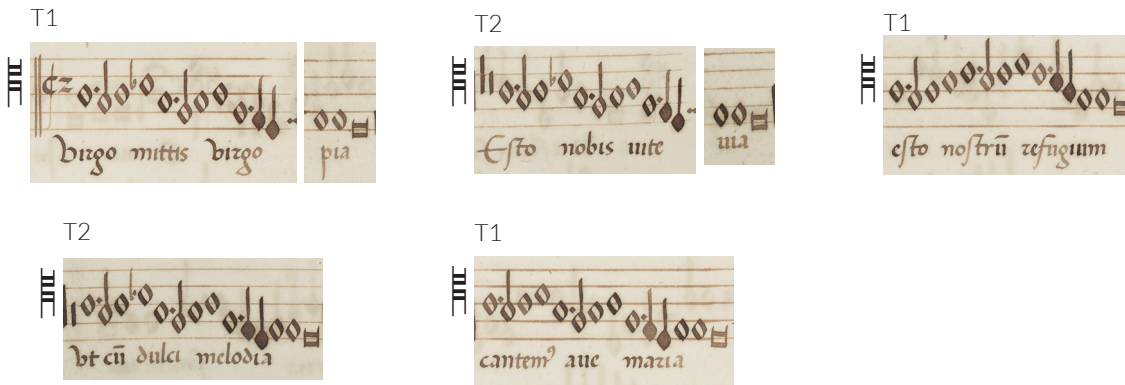 T1
T2
T1
Virgo mittis virgo pia
Esto nobis uite uia
esto nostrū refugium
T2
T1
Vt cū dulci melodia
cantemꝰ aue maria